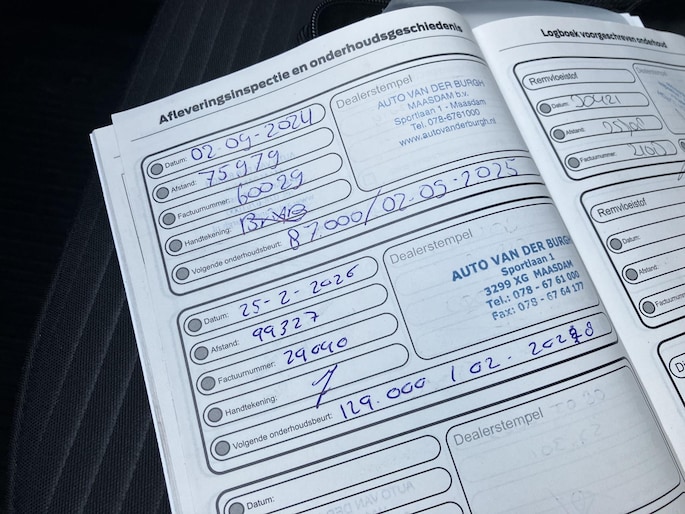 Afleveringsinspectie en onderhoudsgeschiedenis
Datum: 02-09-2024
Afstand: 75979
Factuurnummer: 60029
Handtekening:
Volgende onderhoudsbeurt: 87000/02-09-2025
Dealerstempel
AUTO VAN DER BURGH
MAASDAM b.v.
Sportlaan 1 - Maasdam
Tel. 078-6761000
www.autovanderburgh.nl
Datum: 25-2-2026
Afstand: 99327
Factuurnummer: 29040
Handtekening:
Volgende onderhoudsbeurt: 129.000 / 02-2028
Dealerstempel
AUTO VAN DER BURGH
Sportlaan 1
3299 XG MAASDAM
Tel.: 078 - 67 61 000
Fax: 078 - 67 64 177
Datum:
Dealerstempel
Logboek voorgeschreven onderhoud
Remvloeistof
Datum:
Afstand:
Factuurnummer:
Dealerstempel
Remvloeistof
Datum:
Afstand:
Factuurnummer: